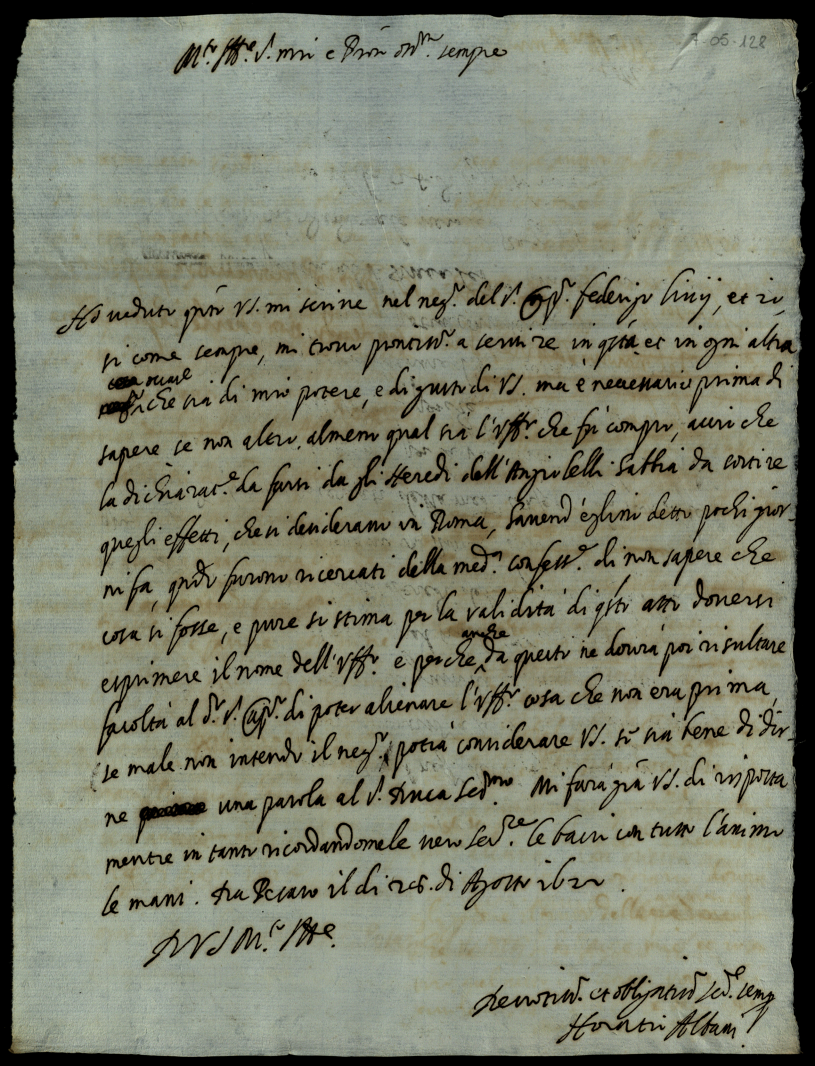 A-05-128
M.to Ill.re S.r mio e Pron oss.mo sempre
Ho veduto q.nto V.S. mi scrive nel neg.o del S.r Cap.o federigo et io,
si come sempre, mi trovo prontiss.o a servire in q.sta et in ogni altra
che sia di mio potere, e di gusto di V.S. ma è necessario prima di
sapere se non altro, almeno qual sia l'Uff.o che fù compro, acciò che
la dichiarat.e da farsi da gli Heredi dell'Angiolelli habbia da sortire
quegli effetti, che si desiderano in Roma, havend'eglino detto pochi gior-
ni fa, q.ndo furono ricercati della med.a confess.e di non sapere che
cosa si fosse, e pure si stima per la validità di q.sto atto doversi
esprimere il nome dell'Uff.o e perche anche da questo ne dovrà poi risultare
facoltà al d.o S.r Cap.o di poter alienare l'Uff.o cosa che non era prima,
(se male non intendo il neg.o) potrà considerare V.S. se sia bene di dir-
ne una parola al S. Duca Ser.mo Mi farà grã V.S. di risposta
mentre in tanto ricordandomele vero Ser.re le bacio con tutto l'animo
le mani. Da Pesaro il di 26. di Agosto 1620
D V S M.to Ill.re
Devotiss.o et obligatiss.o Ser.e semp
Horatio Albani